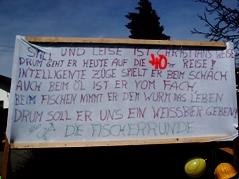 STILL UND LEISE IST CHRISTIANS WEISE
DRUM GEHT ER HEUTE AUF DIE 40er REISE!
INTELLIGENTE ZÜGE SPIELT ER BEIM SCHACH
AUCH BEIM ÖL IST ER VOM FACH,
BEIM FISCHEN NIMMT ER DEM WURM DAS LEBEN
DRUM SOLL ER UNS EIN WEISSBIER GEBEN!
DIE FISCHERRUNDE